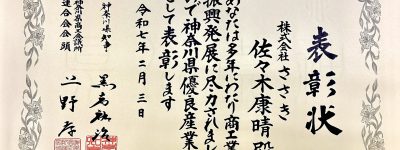 表彰状
株式会社 ささき
佐々木康晴 殿
あなたは多年にわたり商工業
振興発展に尽力されまし
で神奈川県優良産業
として表彰します
令和七年二月三日
神奈川県知事
黒岩祐治
神奈川県商工会議所
連合会会頭
上野孝